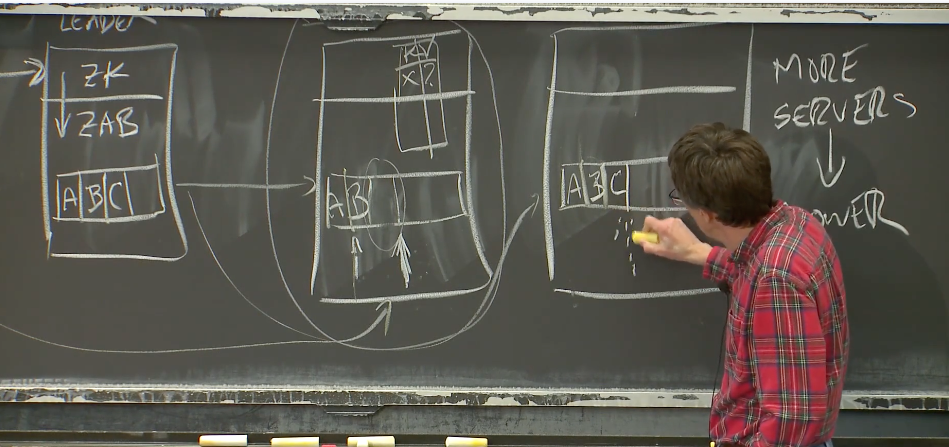 LEADER
ZK
ZAB
A B C
K V
X ?
A B
A B C
MORE
SERVERS